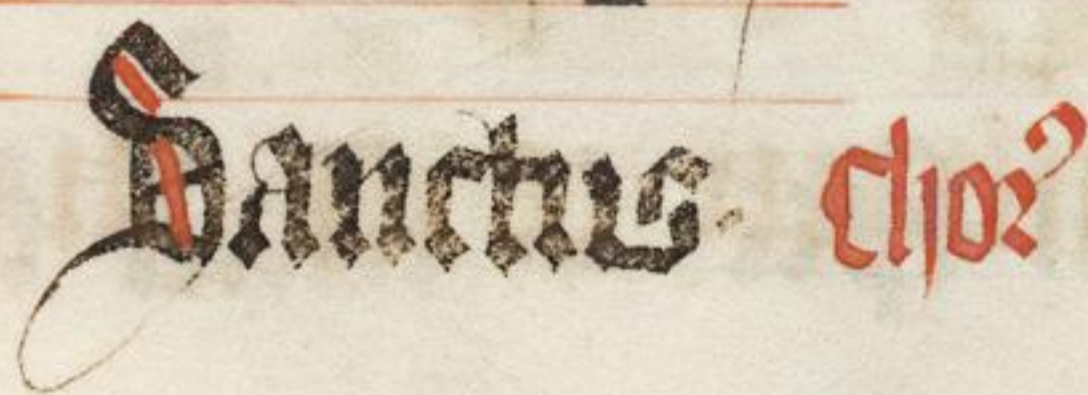 Sanctus. Chorꝰ